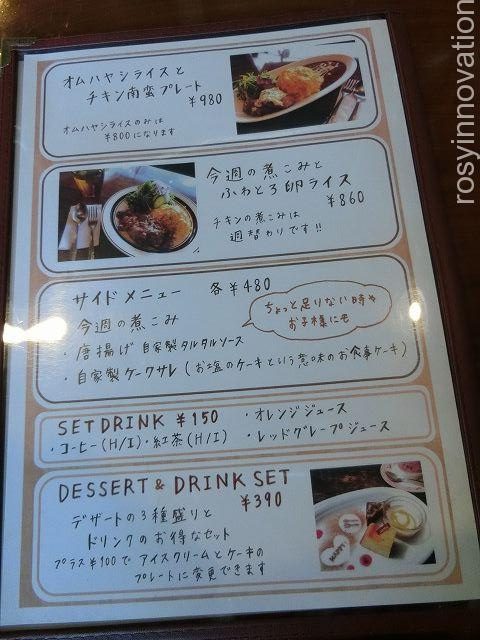 オムハヤシライスと
チキン南蛮プレート
¥980
オムハヤシライスのみは
¥800になります
今週の煮こみと
ふわとろ卵ライス
¥860
チキンの煮こみは
週替わりです!!
サイドメニュー 各¥480
今週の煮こみ
・唐揚げ 自家製タルタルソース
・自家製ケークサレ(お塩のケーキという意味のお食事ケーキ)
ちょっと足りない時や
お子様にも
SET DRINK ¥150
・オレンジジュース
・コーヒー(H/I)・紅茶(H/I)
・レッドグレープジュース
DESSERT & DRINK SET
¥390
デザートの3種盛りと
ドリンクのお得なセット
プラス¥100でアイスクリームとケーキの
プレートに変更できます
rosyinnovation